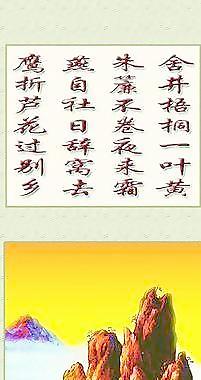 舍井梧桐一叶黄
朱簾不卷夜来霜
燕自社日辞窝去
鹰折芦花过别乡